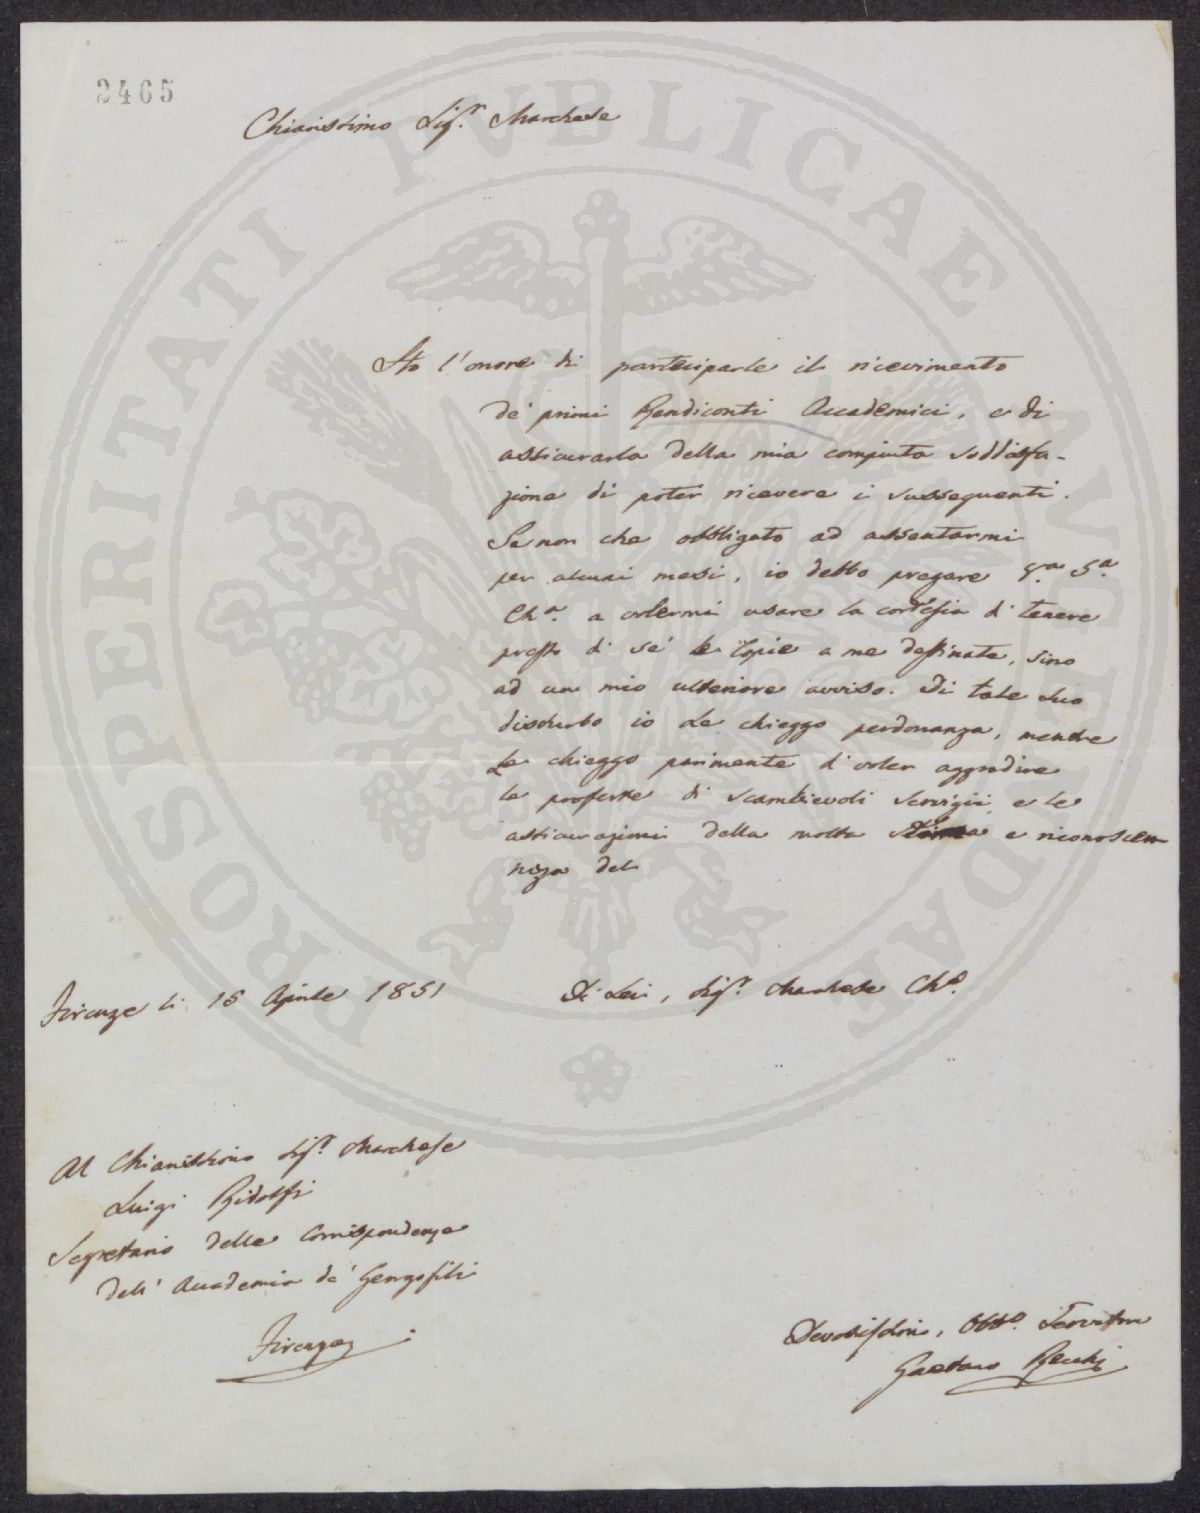 2465
Chiarissimo Sig.r Marchese
Ho l'onore di parteciparle il ricevimento
de' primi Rendiconti Accademici, e di
assicurarla della mia compiuta soddisfa-
zione di poter ricevere i susseguenti.
Se non che obbligato ad assentarmi
per alcuni mesi, io debbo pregare V.a S.a
Ch.a a volermi usare la cortesia di tenere
presso di sé le Copie a me destinate, sino
ad un mio ulteriore avviso. Di tale suo
disturbo io Le chieggo perdonanza, mentre
Le chieggo parimente di voler aggradire
le profferte di scambievoli servigii, e le
assicurazioni della molta stima e riconoscen
niza del
Di Lei, Sig.r Marchese Ch.o
Firenze li 15 Aprile 1851
Al Chiarissimo Sig.r Marchese
Luigi Ridolfi
Segretario delle Corrispondenze
dell' Accademia de' Gergofili
Firenze
Devotissimo, Obb.o Servitore
Gaetano Recchi
PROSPERITATI PVBLICAE AVGENDAE